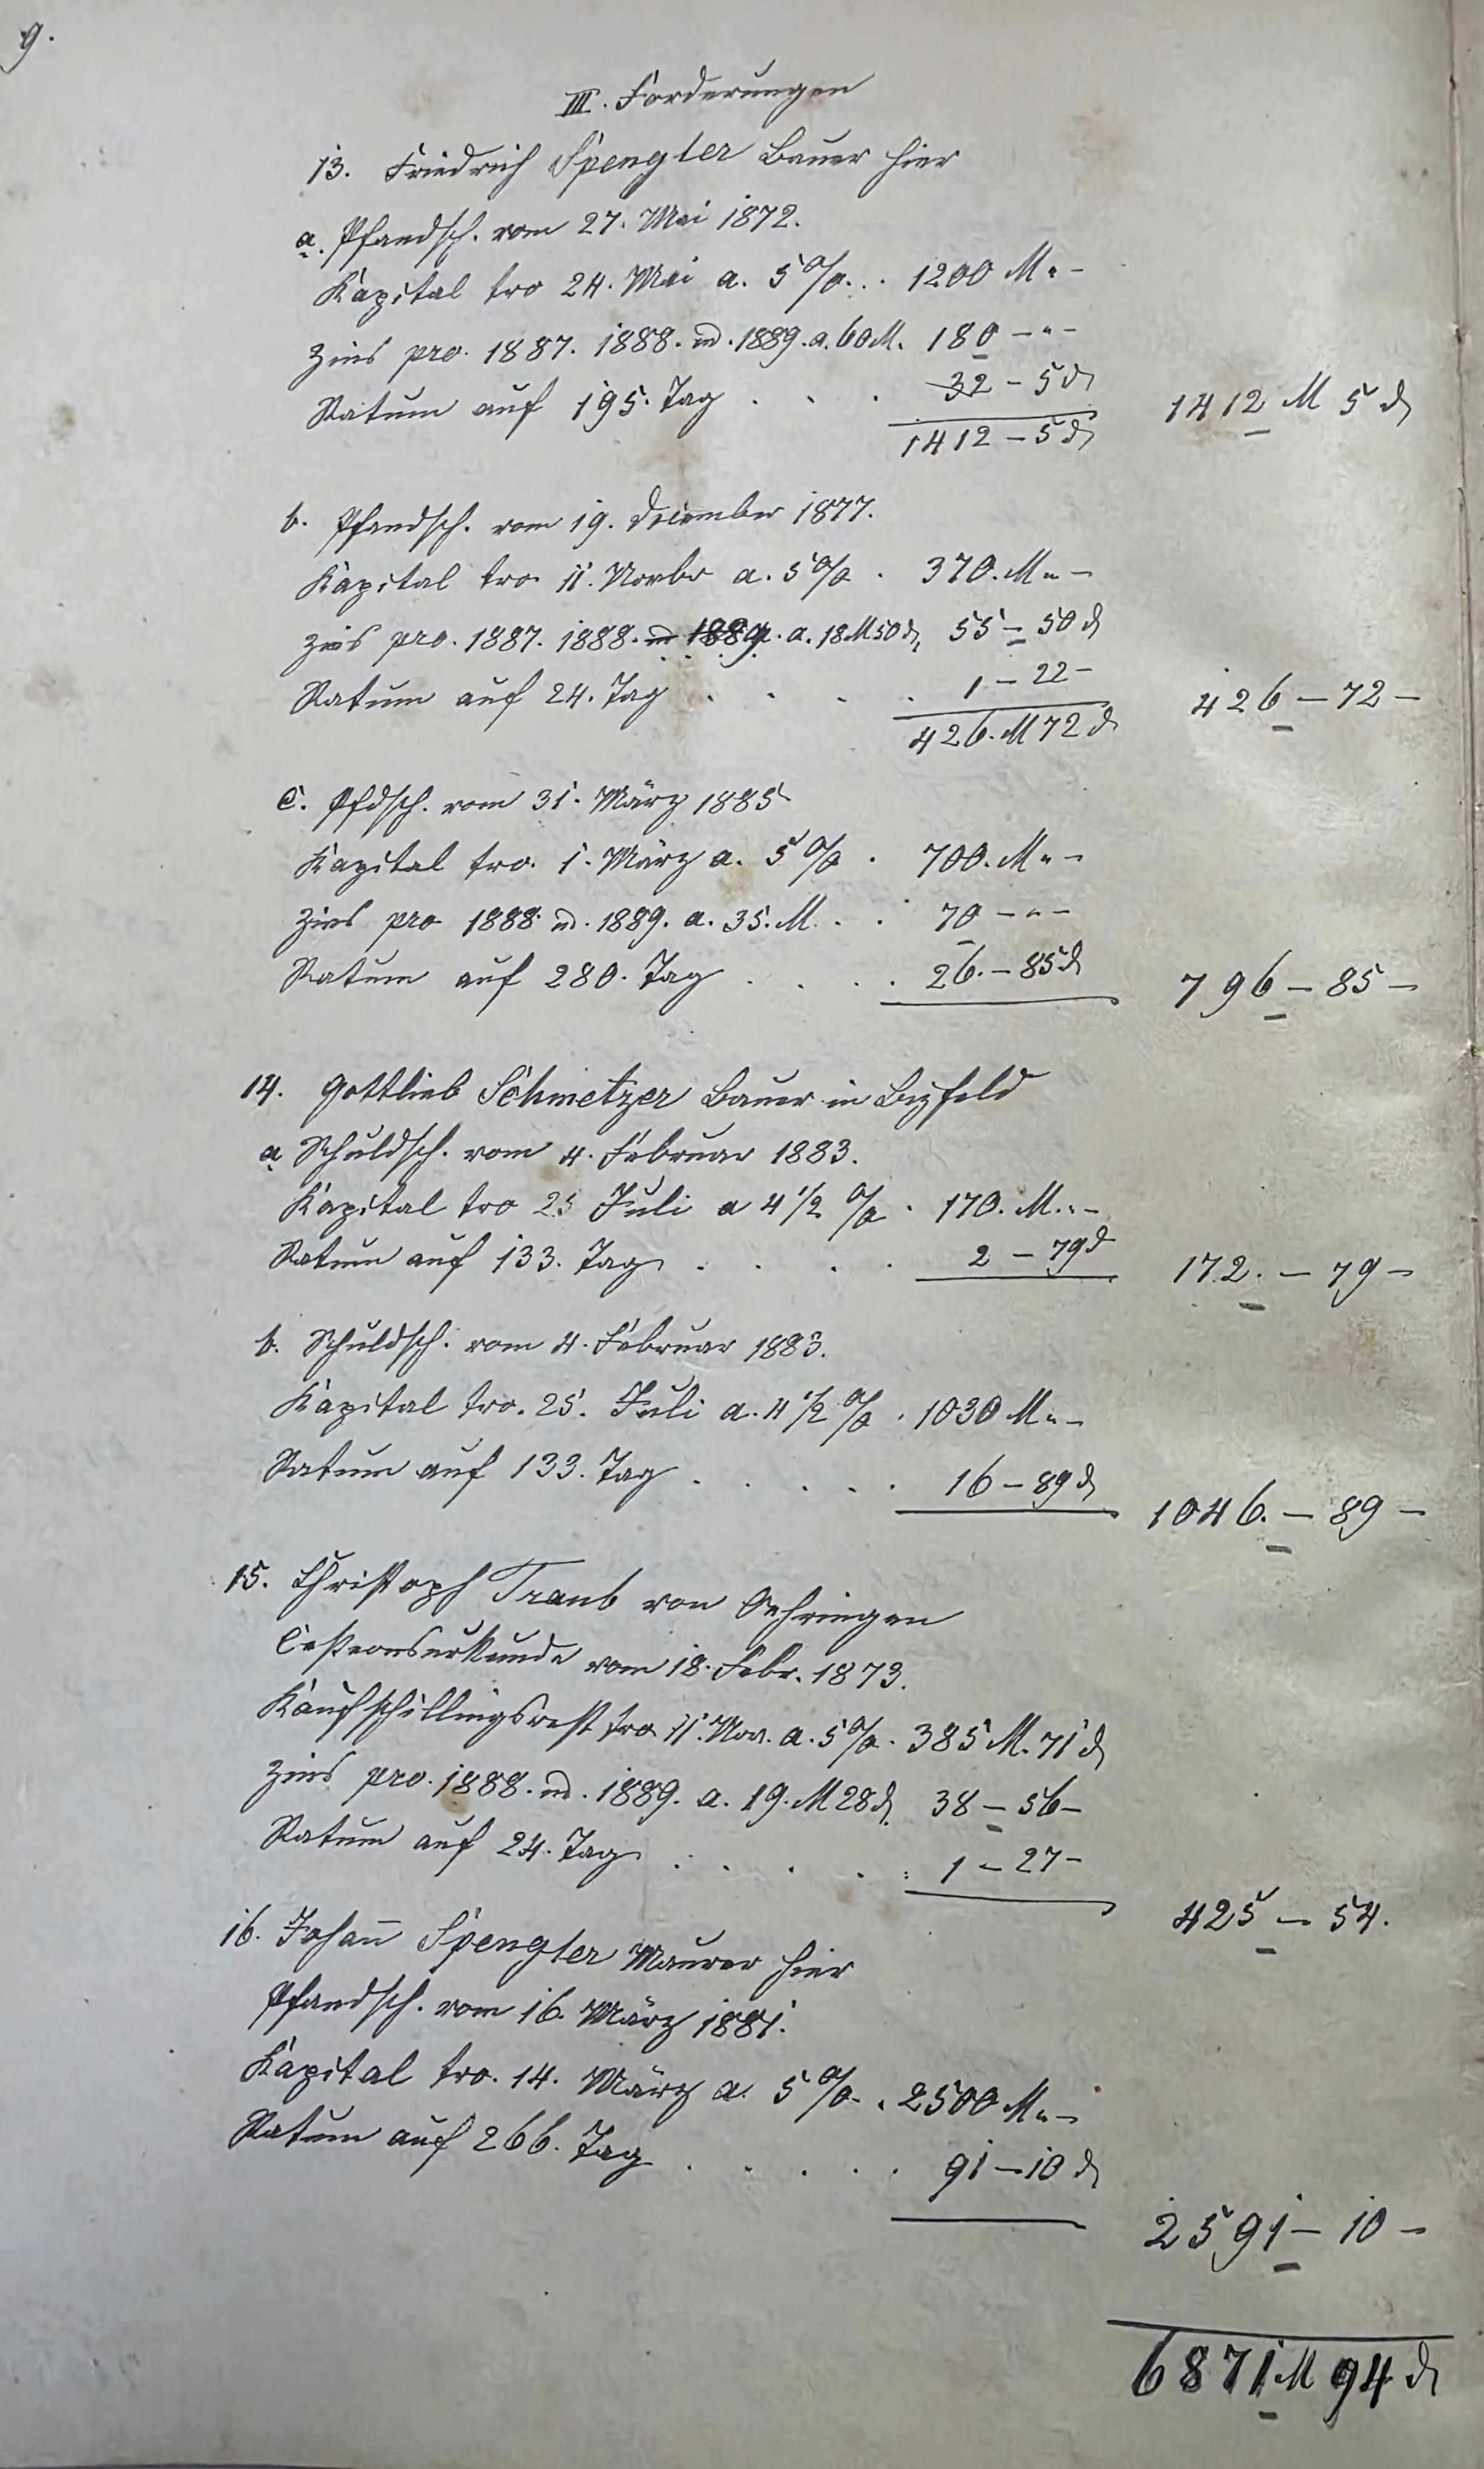 9.
III. Forderungen
13. Friedrich Spengler Bauer hier
a. Pfandsch. vom 27. Mai 1872.
Kapital tro 24. Mai a. 5 % . . 1200 M " -
Zins pro. 1887. 1888. u. 1889. a. 60 M. 180 - " -
Ratum auf 195. Tag . . . 32 - 5 ₰
1412 - 5 ₰ 1412 M 5 ₰
b. Pfandsch. vom 19. December 1877.
Kapital tro. 11. Novbr a. 5 % . 370. M " -
Zins pro. 1887. 1888. u 1889. a. 18 M 50 ₰, 55 - 50 ₰
Ratum auf 24. Tag . . . . 1 - 22 -
426. M 72 ₰ 426 - 72 -
c. Pfdsch. vom 31. März 1885
Kapital tro. 1. März a. 5 % . 700. M " -
Zins pro 1888. u. 1889. a. 35. M. . . 70 - " -
Ratum auf 280. Tag . . . . 26. - 85 ₰ 796 - 85 -
14. Gottlieb Schmetzer Bauer in Bizfeld
a Schuldsch. vom 4. Februar 1883.
Kapital tro 25 Juli a 4 1/2 % . 170. M. " -
Ratum auf 133. Tag . . . . 2 - 79 ₰ 172. - 79 -
b. Schuldsch. vom 4. Februar 1883.
Kapital tro. 25. Juli a. 4 1/2 % . 1030 M " -
Ratum auf 133. Tag . . . . . 16 - 89 ₰ 1046. - 89 -
15. Christoph Traub von Oehringen
Cessionsurkunde vom 18. Febr. 1873.
Kaufschillingsrest tro. 11. Nov. a. 5 %. 385 M. 71 ₰
Zins pro. 1888. u. 1889. a. 19. M 28 ₰. 38 - 56 -
Ratum auf 24. Tag . . . . . 1 - 27 -
425 - 54.
16. Johan̄ Spengler Maurer hier
Pfandsch. vom 16. März 1881.
Kapital tro. 14. März a. 5 % . 2500 M " -
Ratum auf 266. Tag . . . . . 91 - 10 ₰
2591 - 10 -
6871 M 94 ₰